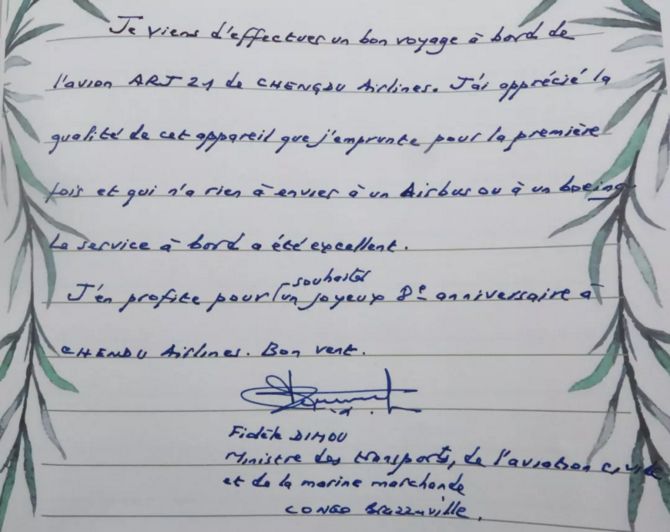 Je viens d'effectuer un bon voyage à bord de
l'avion ARJ 21 de CHENGDU Airlines. J'ai apprécié la
qualité de cet appareil que j'emprunte pour la première
fois et qui n'a rien à envier à un Airbus ou à un boeing
Le service à bord a été excellent.
souhaiter
J'en profite pour un joyeux 8e anniversaire à
CHENDU Airlines. Bon vent.
Fidèle DIMOU
Ministre des transports, de l'aviation civile
et de la marine marchande
CONGO Brazzaville.